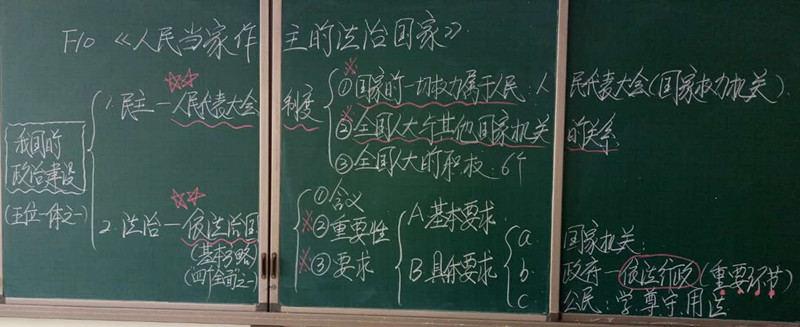 F10《人民当家作主的法治国家》
我国的
政治建设
(五位一体之一)
1.民主—人民代表大会制度
①国家的一切权力属于人民:人民代表大会(国家权力机关)
②全国人大与其他国家机关的关系
③全国人大的职权:6个
2.法治—依法治国
(基本方略)
(四个全面之一)
①含义
②重要性
③要求
A.基本要求
B.具体要求
a
国家机关:
b.
政府—依法行政(重要环节)
c
公民:学.尊.守.用法